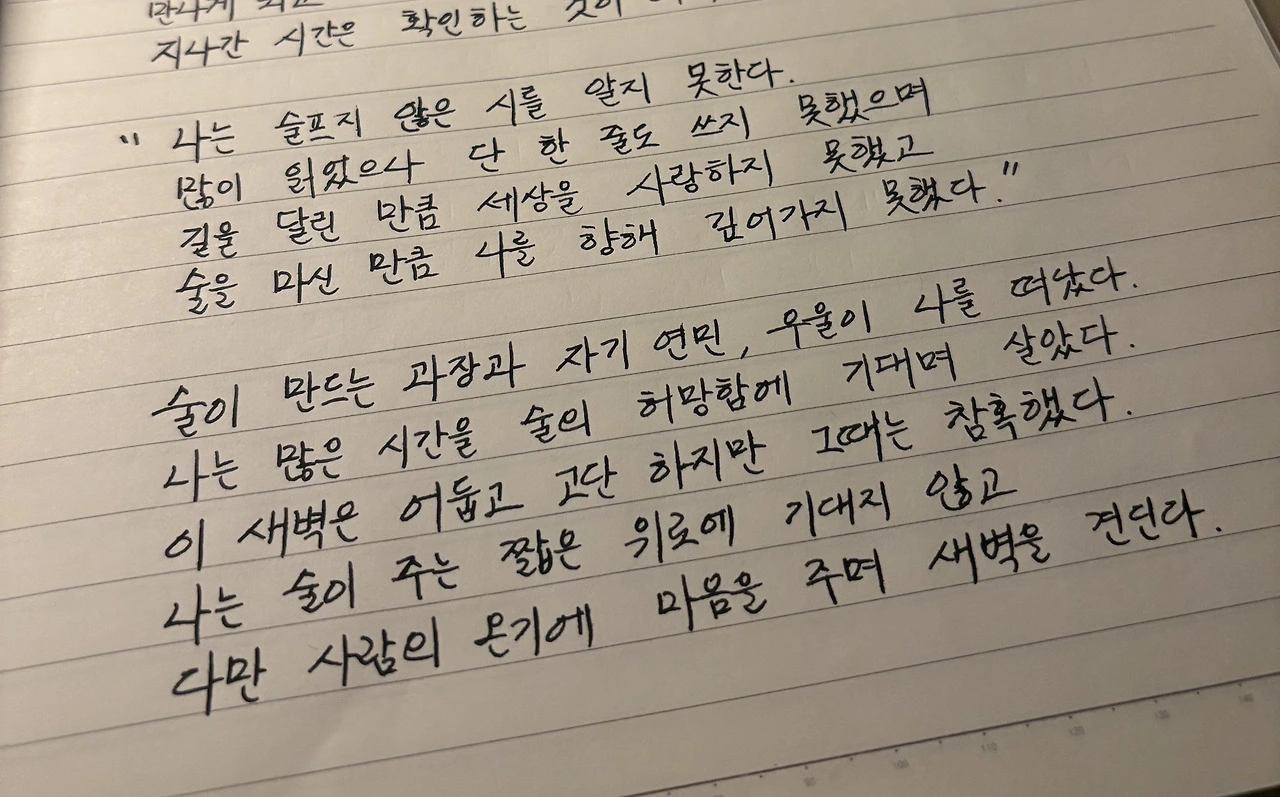 지나간 시간은 확인하는 것이
" 나는 슬프지 않은 시를 알지 못한다.
많이 읽었으나 단 한 줄도 쓰지 못했으며
길을 달린 만큼 세상을 사랑하지 못했고
술을 마신 만큼 나를 향해 깊어가지 못했다."
술이 만드는 과장과 자기 연민, 우울이 나를 떠났다.
나는 많은 시간을 술의 허망함에 기대며 살았다.
이 새벽은 어둡고 고단 하지만 그때는 참혹했다.
나는 술이 주는 짧은 위로에 기대지 않고
다만 사람의 온기에 마음을 주며 새벽을 견딘다.